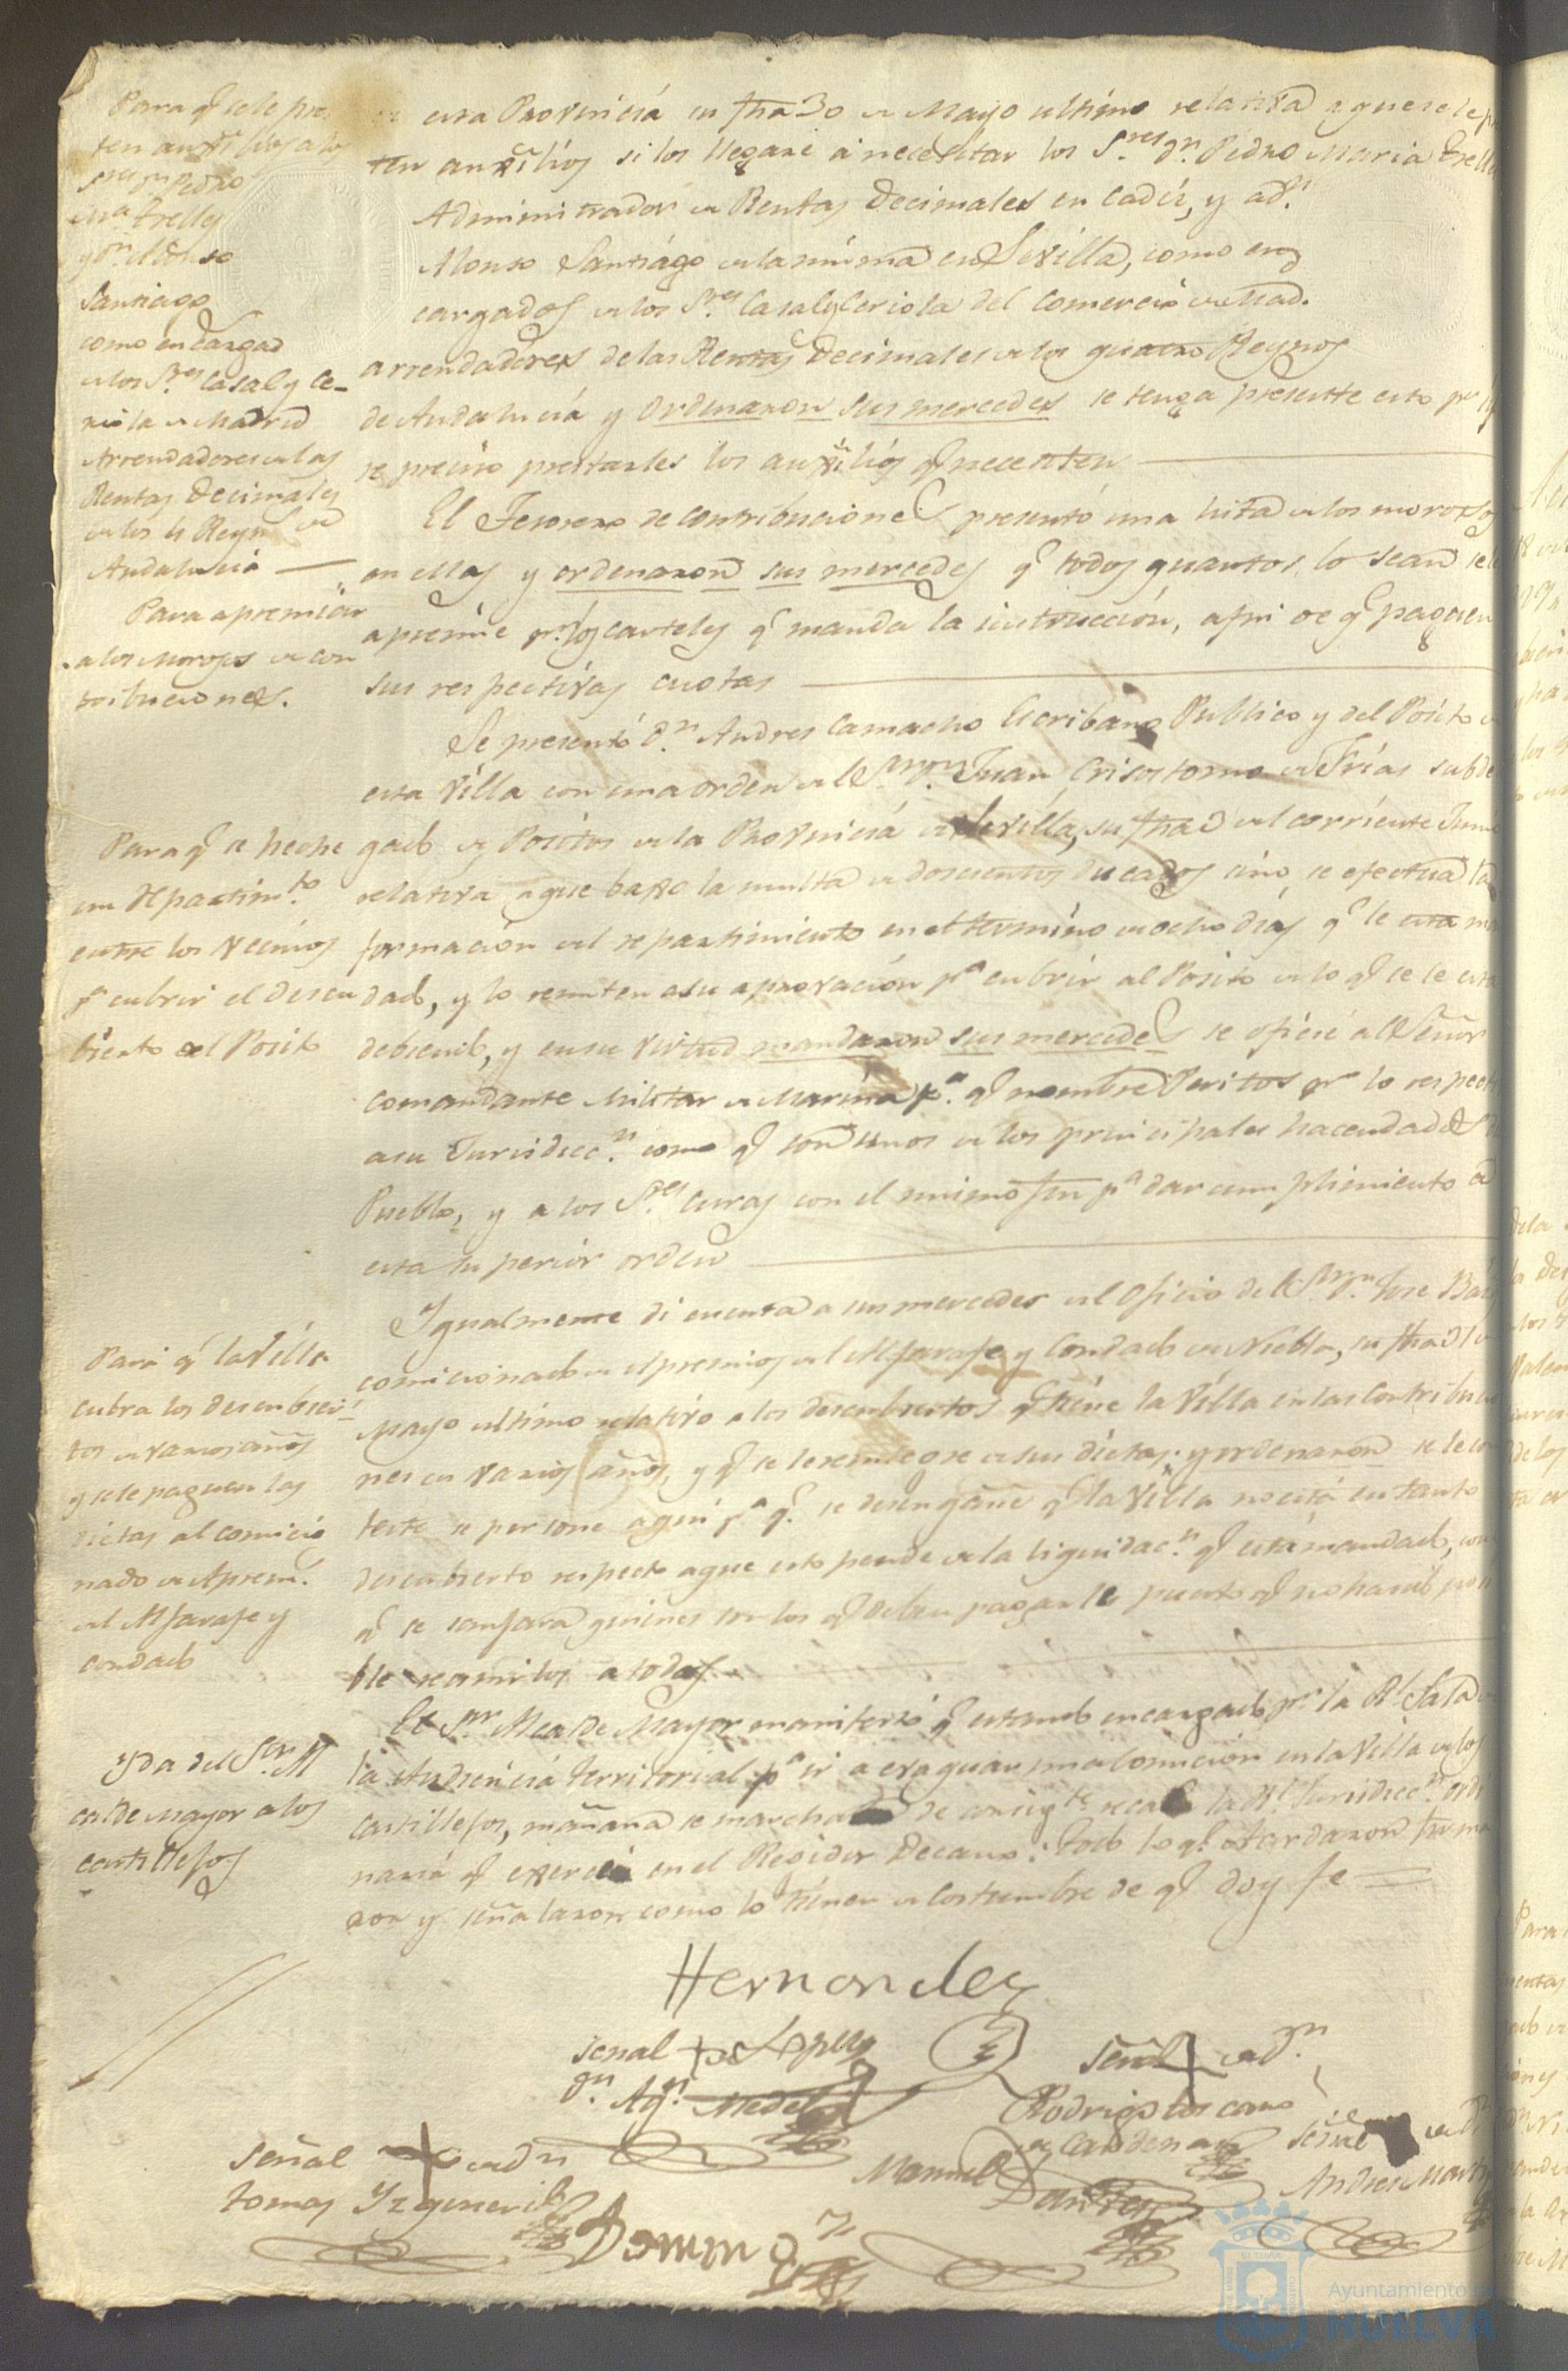 Para q.e se le pres
ten auxilios a los
S.res D.n Pedro
M.a Trelles
y D.n Alonso
Santiago
como encargad
de los S.res Casal y Ce-
riola de Madrid
Arrendadores de las
Rentas Decimales
de los 4 Reyn.s de
Andalucía
esta Provincia su fha 30 de Mayo ultimo relativa a que se le p
ten auxilios si los llegare a necesitar los S.res D.n Pedro Maria Trelles
Administrador de Rentas Decimales en Cadiz, y a D.n
Alonso Santiago de la misma en Sevilla, como en
cargados de los S.res Casal y Ceriola del Comercio de Mad.
arrendadores de las Rentas Decimales de los quatro Reynos
de Andalucía y ordenaron sus mercedes se tenga presente esto p.r si
es preciso prestarles los auxilios q.e necesiten
El Tesorero de contribuciones presentó una lista de los morosos
en ellas y ordenaron sus mercedes q.e todos quantos lo sean se le
apremie p.r los carteles q.e manda la instruccion, a fin de q.e paguen
sus respectivas cuotas
Para apremiar
a los Morosos de con
tribuciones.
Se presentó D.n Andres Camacho Escribano Publico y del Posito de
esta Villa con una orden del S.or D.n Juan Crisostomo de Frias subde
gado de Positos de la Provincia de Sevilla, su fha 3 del corriente Junio
relativa a que baxo la multa de doscientos ducados sino se efectua la
formacion del repartimiento en el termino de ocho dias q.e le esta man
dado, y lo remiten a su aprovacion p.a cubrir al Posito de lo q.e se le esta
debiendo, y en su virtud mandaron sus mercedes se oficie al Señor
Comandante Militar de Marina p.a q.e nombre Peritos p.r lo respect
a su Jurisdicc.n como q.e son unos de los principales hacendados
Pueblo, y a los S.res Curas con el mismo fin p.a dar cumplimiento a
esta superior orden
Para q.e se heche
un Repartim.to
entre los Vecinos
p.a cubrir el descu
bierto del Posito
Igualmente di cuenta a sus mercedes del oficio del S.or D.n Jose
comicionado de Apremios del Aljarafe y Condado de Niebla, su fha
Mayo ultimo relativo a los descubiertos q.e tiene la Villa en las Contribucio
nes en varios años, y q.e se le reintegre de sus dietas: y ordenaron se le con
teste se persone aqui p.a q.e se desengañe q.e la Villa no está en tanto
descubierto respecto a que esto pende de la liquidac.n q.e está mandado, con
q.e se compara quienes son los q.e deben pagarle puesto q.e no ha sido posi
ble reunirlos a todos
Para q.e la Villa
cubra los descubier
tos de varios años
y se le paguen las
dietas al comicio
nado de Aprem.
del Aljarafe y
condado
El S.or Alcalde Mayor manifestó q.e estando encargado p.r la R.l Sala de
la Audiencia territorial p.a ir a evaquar una Comicion en la Villa de los
Castillejos, mañana se marchaba de consig.te recae la R.l Jurisdicc.n ordi
naria q.e exercia en el Regidor Decano: Todo lo q.e Acordaron firma
ron y señalaron como lo tienen de Costumbre de q.e doy fe
Yda del S.or Al
calde Mayor a los
castillejos
Hernandez
señal + de Lopez
D.n Ag.n Medel
señal + de D.n
Rodrigo toscano
de Cardenas
señal + de D.n
tomas Yzquierdo
Manuel
Dantes
señal de D.n
Andres Mart
Doming.z
Ayuntamiento de
HUELVA